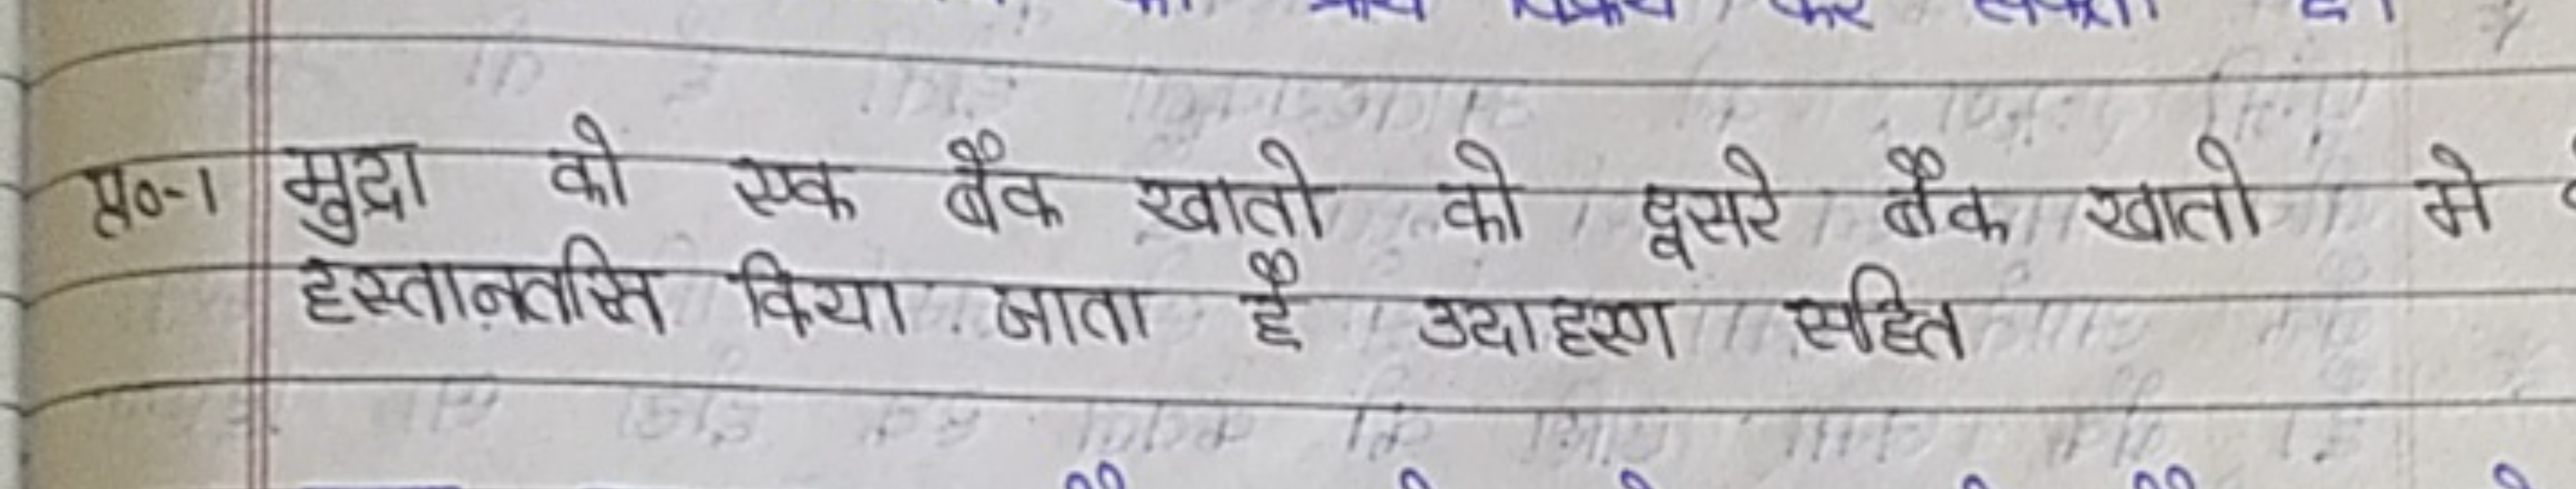 प्र०-1 मुद्रा को एक बैंक खातो को दूसरे बैंक खातो मे
हस्तानतरित किया जाता है उदाहरण सहित